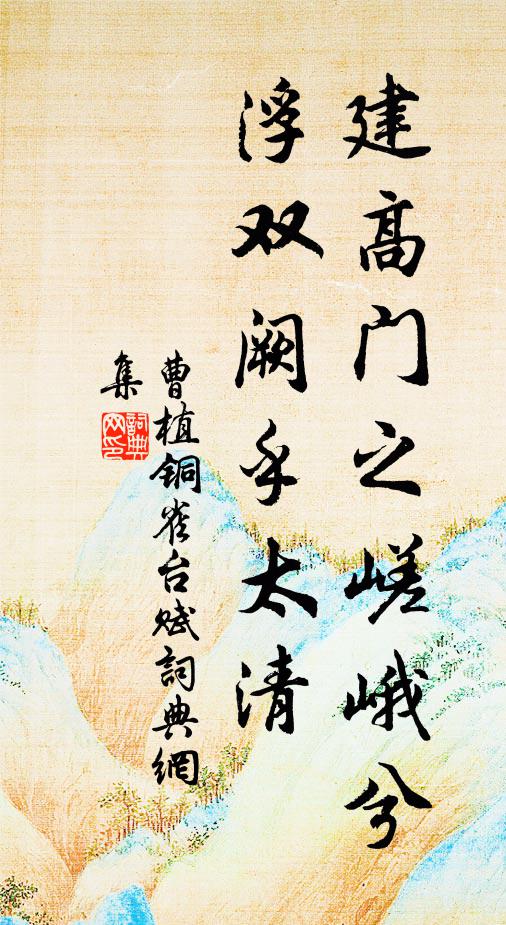 建高门之嵯峨兮
浮双阙乎太清
曹植铜雀台赋詞典網
集
詞典
网印